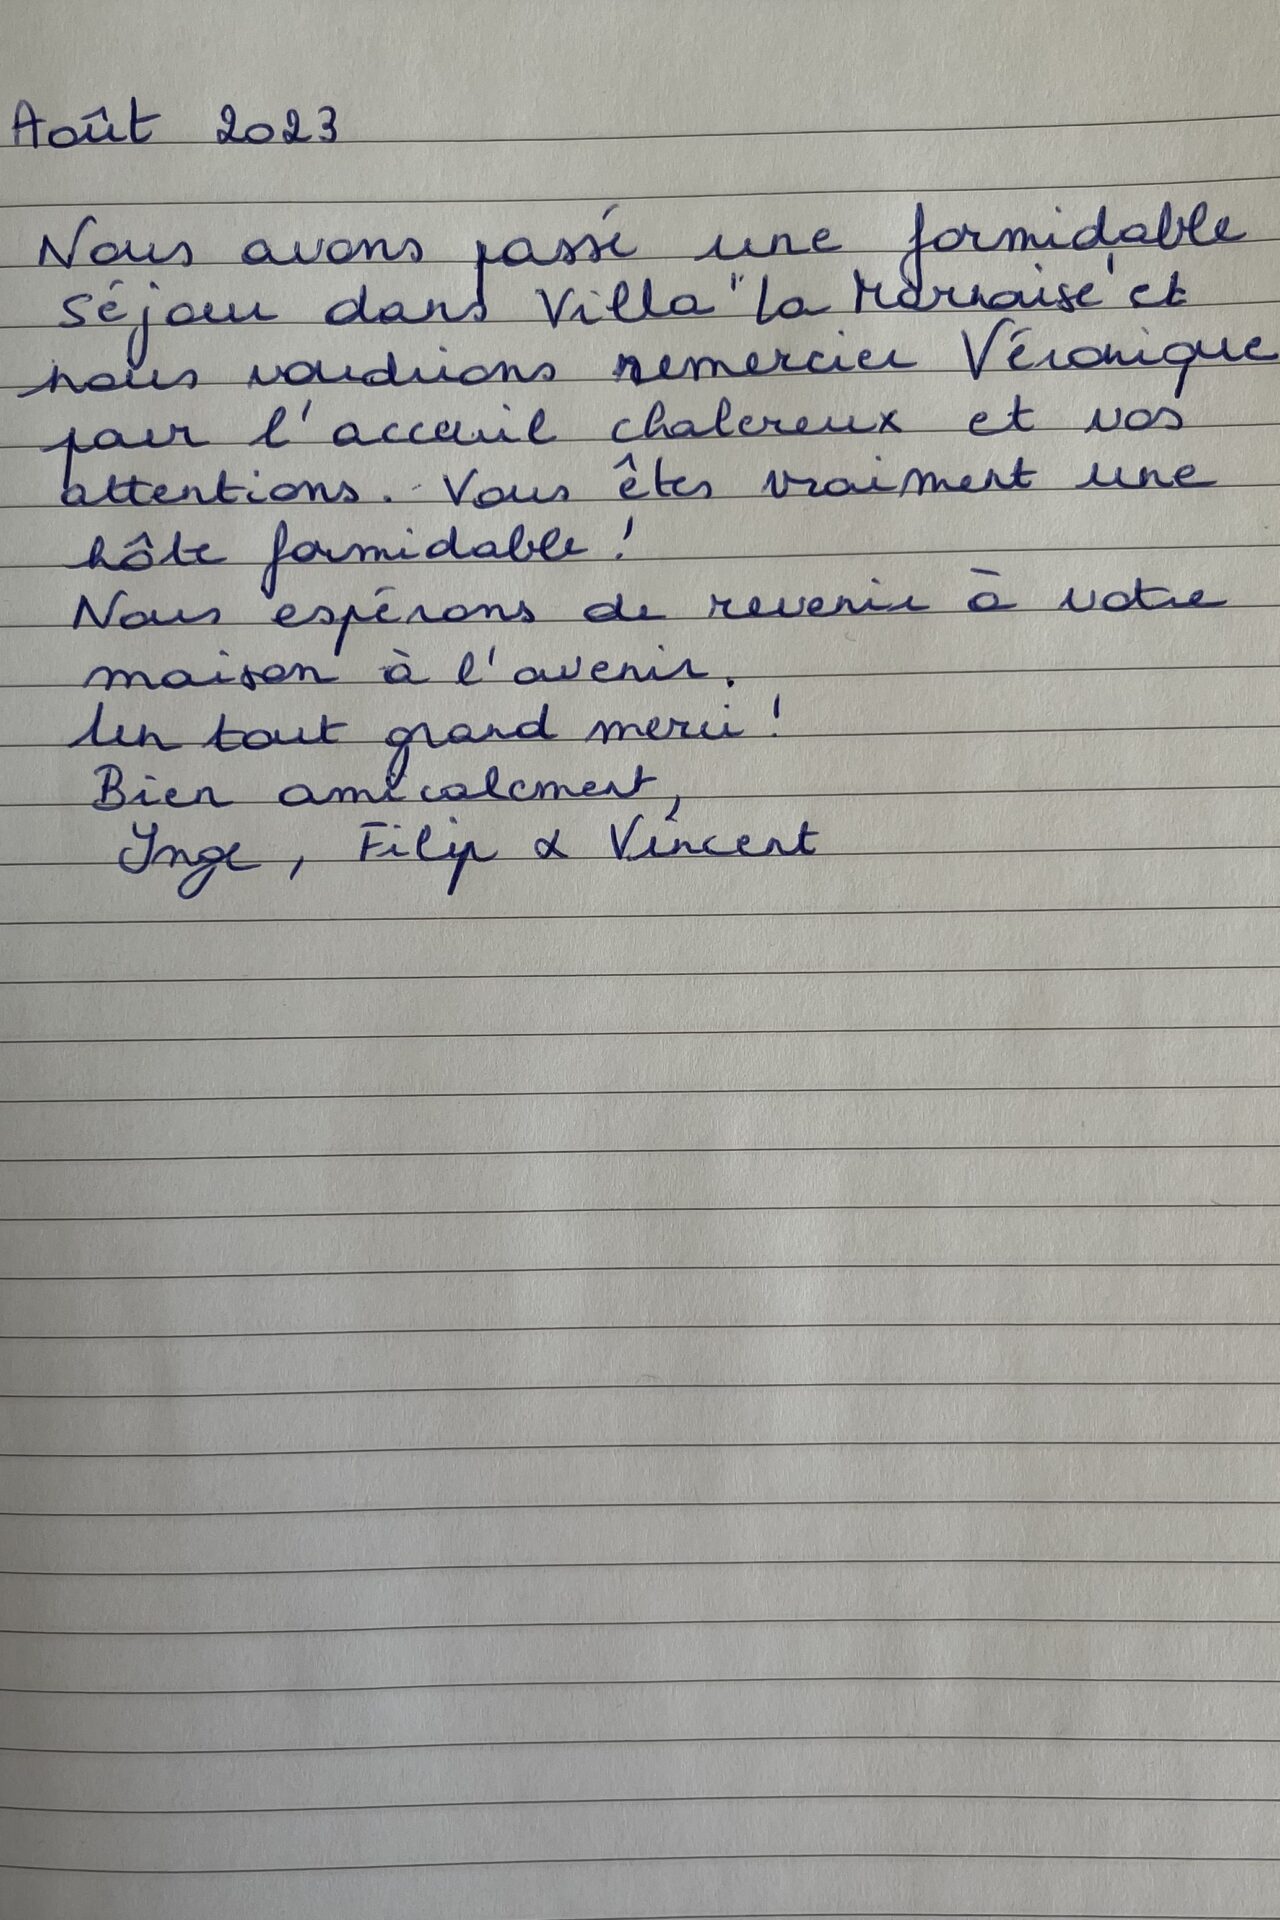 Août 2023
Nous avons passé une formidable
séjour dans Villa "la Marnaise" et
nous voudrions remercier Véronique
pour l'acceuil chalereux et vos
attentions. Vous êtes vraiment une
hôte formidable !
Nous espérons de revenir à votre
maison à l'avenir.
Un tout grand merci !
Bien amicalement,
Inge, Filip & Vincent